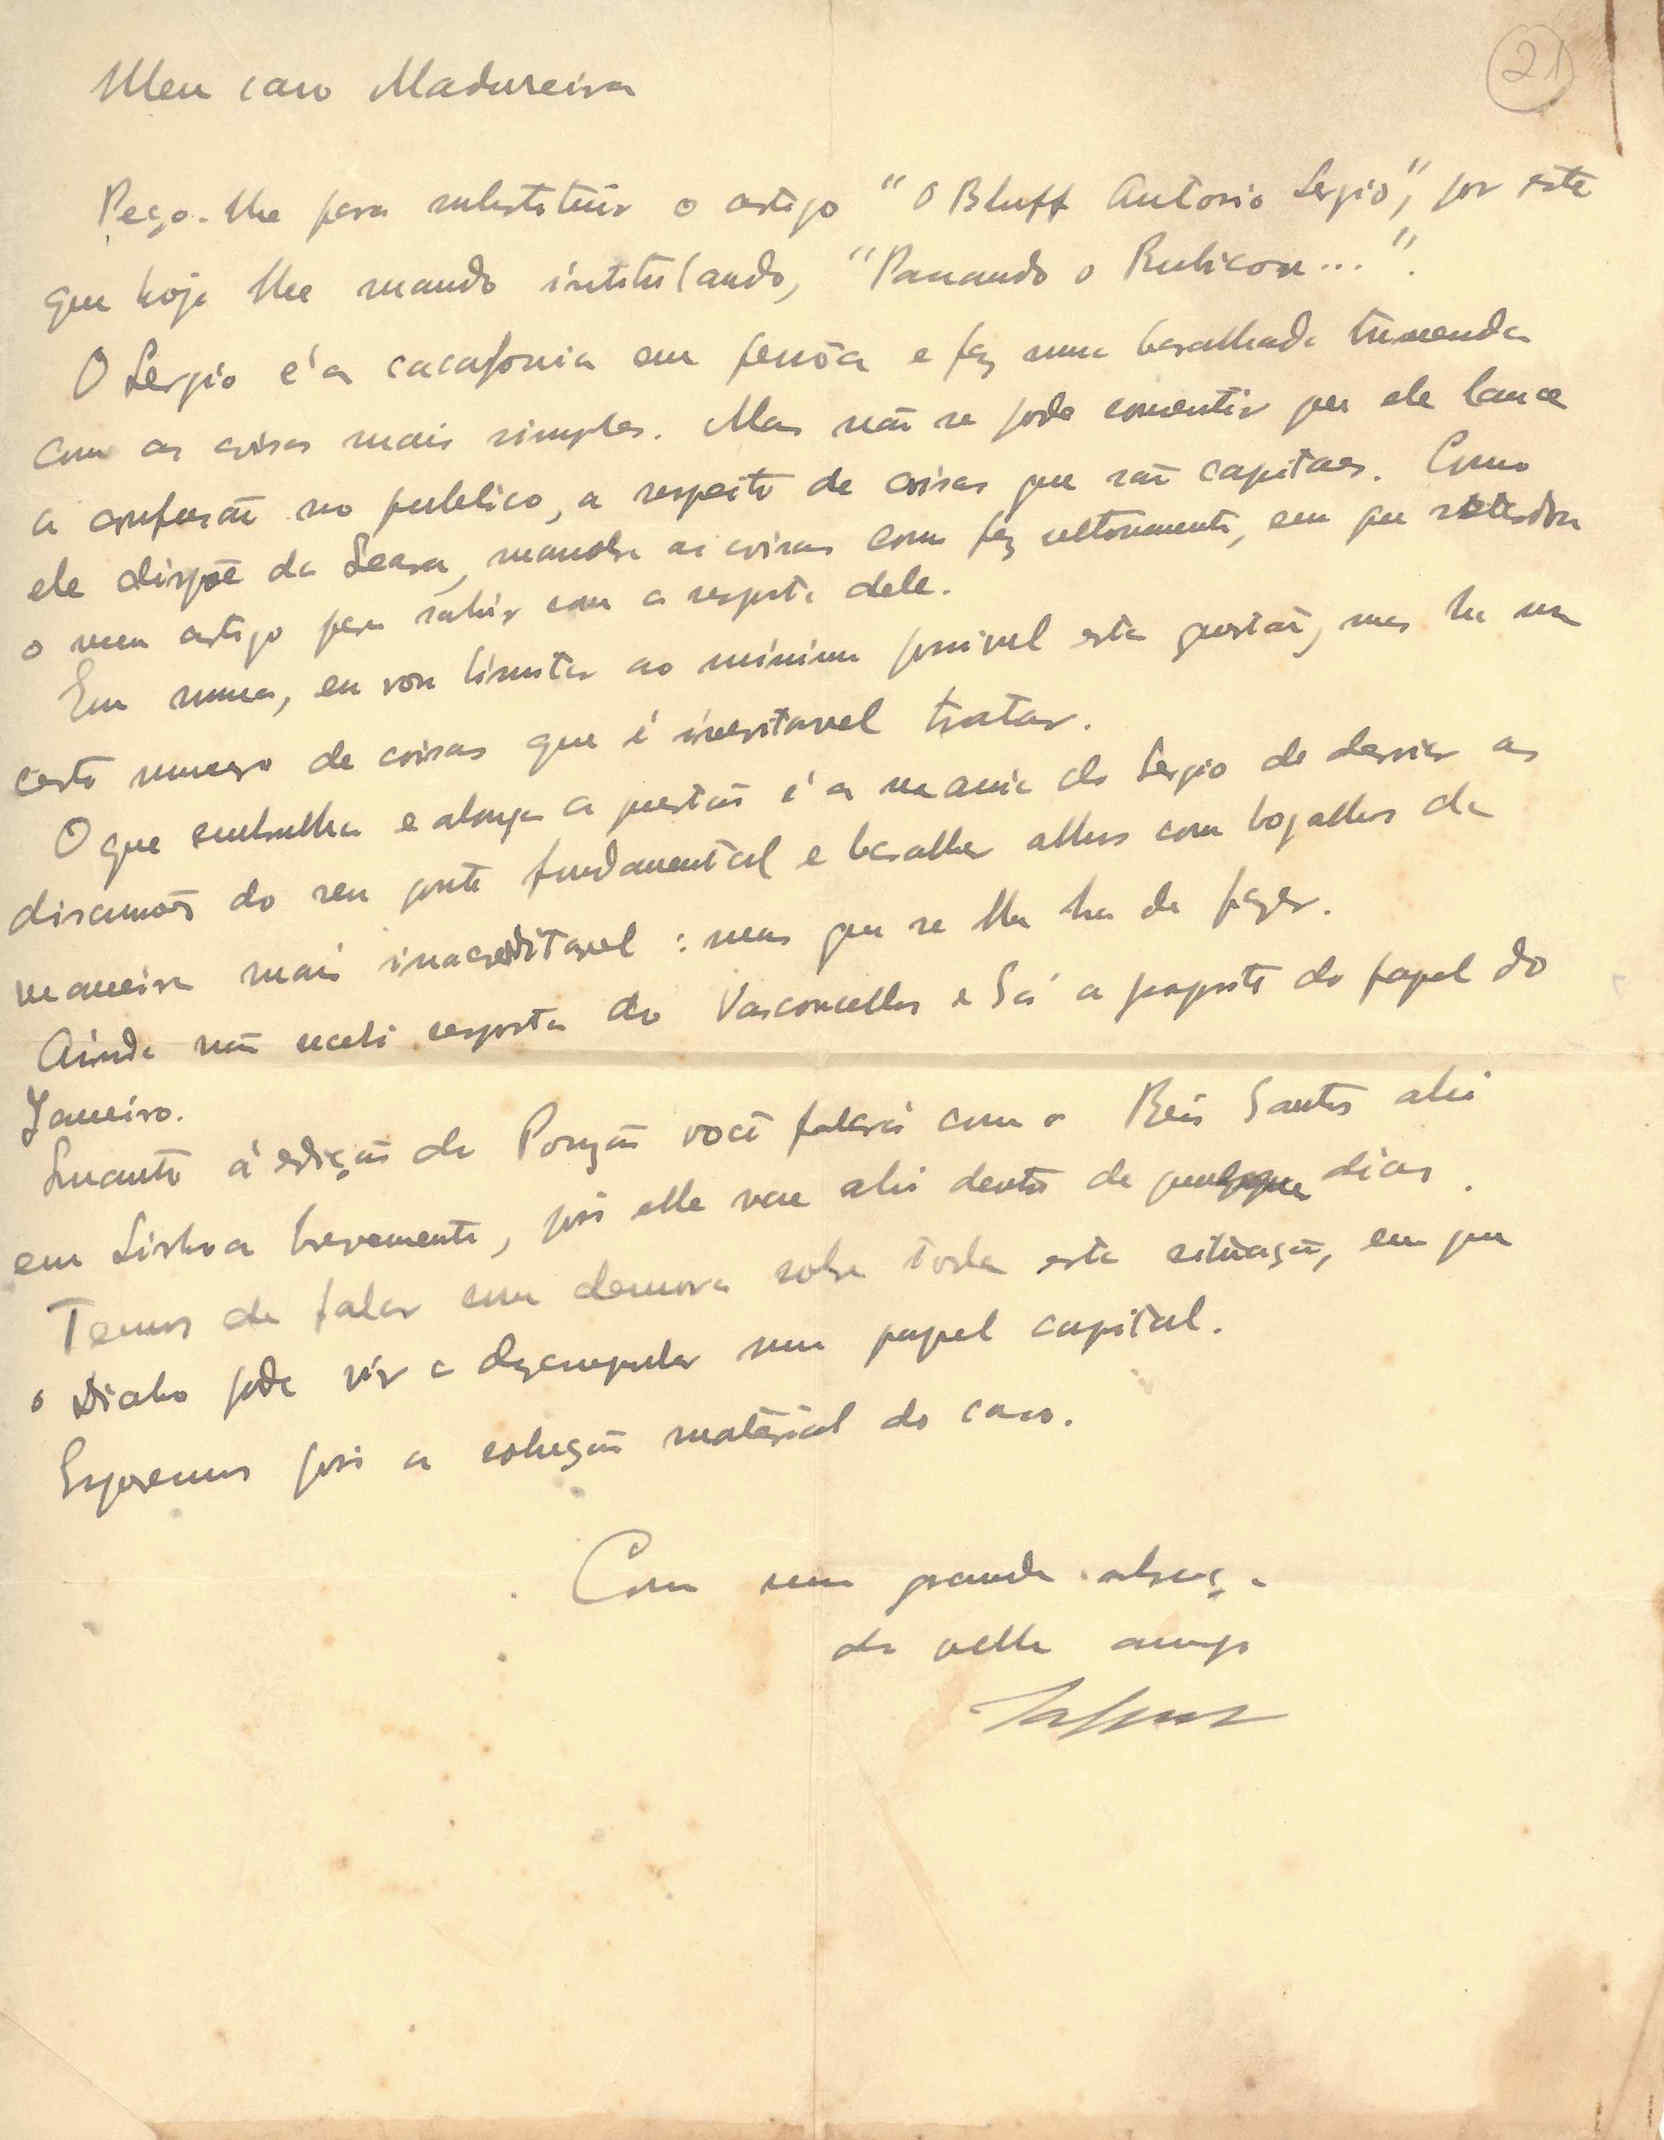 21
Meu caro Madureira
Peço-lhe para substituir o artigo "O Bluff Antonio Sergio", por este
que hoje lhe mando intitulando, "Passando o Rubicon...".
O Sergio é a cacafonia em pessôa e faz uma baralhada tremenda
com as coisas mais simples. Mas não se pode consentir que ele lance
a confusão no publico, a respeito de coisas que são capitaes. Como
ele dispõe da Seara, manobra as coisas como fez ultimamente, em que retardou
o meu artigo para sahir com a resposta dele.
Em suma, eu vou limitar ao minimo possivel esta questão, mas ha um
certo numero de coisas que é inevitavel tratar.
O que embrulha e alonga a questão é a mania do Sergio de desviar as
discussões do seu ponto fundamental e baralhar alhos com bogalhos da
maneira mais inacreditavel: mas que se lhe ha de fazer.
Ainda não recebi resposta do Vasconcellos e Sá a proposito do papel do
Janeiro.
Quanto á edição de Ponção você falará com o Reis Santos ahi
em Lisboa brevemente, pois elle vae ahi dentro de dias.
Temos de falar com demora sobre toda esta situação, em que
o Diabo pode vir a dezempenhar um papel capital.
Esperemos pois a solução material do caso.
Com um grande abraço
do velho amigo